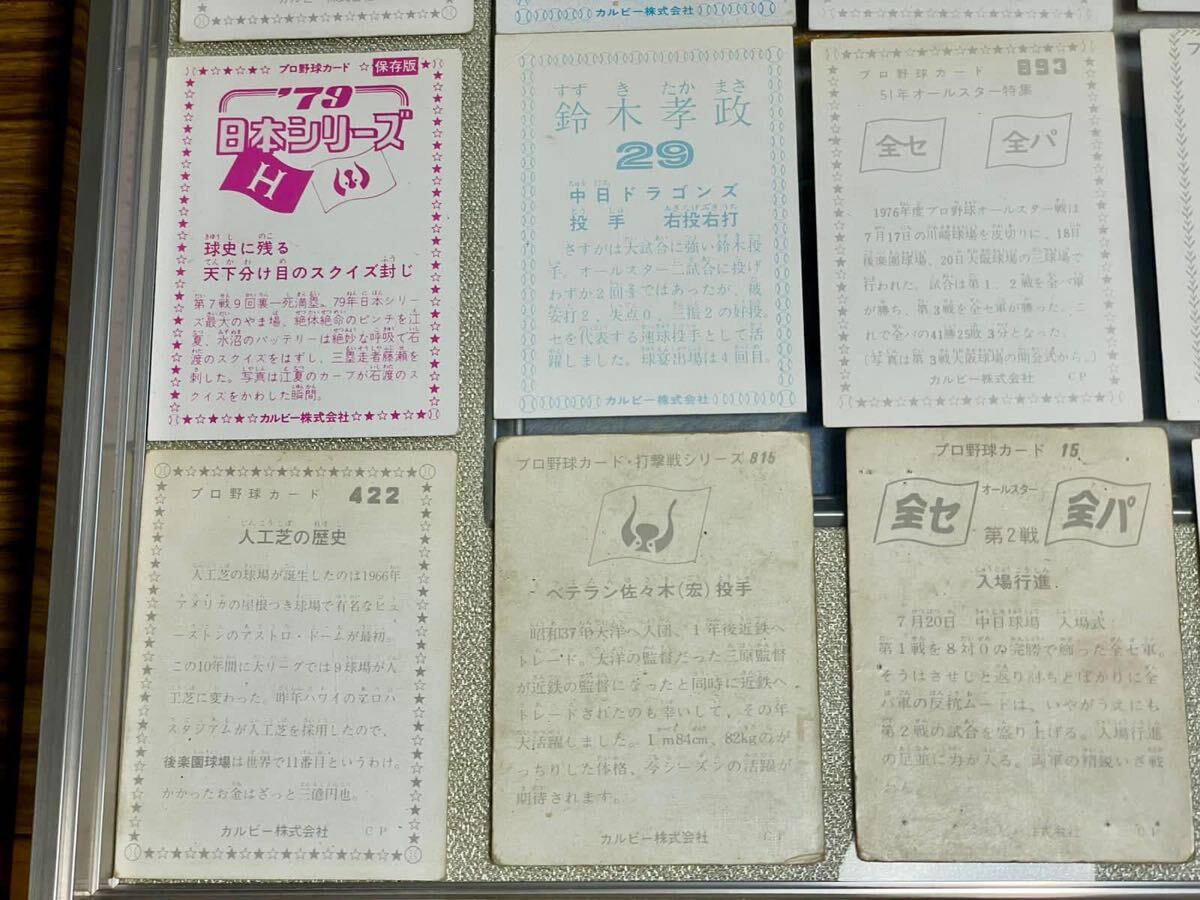 カルビー株式会社
プロ野球カード 保存版
'79
日本シリーズ
H
球史に残る
天下分け目のスクイズ封じ
第7戦9回裏一死満塁。79年日本シリー
ズ最大のやま場、絶体絶命のピンチを江
夏、水沼のバッテリーは絶妙な呼吸で石
渡のスクイズをはずし、三塁走者藤瀬を
刺した。写真は江夏のカーブが石渡のス
クイズをかわした瞬間。
カルビー株式会社
すず き たか まさ
鈴木孝政
29
中日ドラゴンズ
投手 右投右打
さすがは大試合に強い鈴木投
手。オールスター二試合に投げ
わずか2回⅔ではあったが、被
安打2、失点0、三振2の好投。
セを代表する速球投手として活
躍しました。球宴出場は4回目。
カルビー株式会社
プロ野球カード 893
51年オールスター特集
全セ 全パ
1976年度プロ野球オールスター戦は
7月17日の川崎球場を皮切りに、18日
後楽園球場、20日大阪球場の三球場で
行われた。試合は第1、2戦を全パ軍
が勝ち、第3戦を全セ軍が勝った。こ
れで全パの41勝25敗3分となった。
(写真は第3戦大阪球場の開会式から。)
カルビー株式会社 CP
プロ野球カード 422
人工芝の歴史
人工芝の球場が誕生したのは1966年
アメリカの屋根つき球場で有名なヒュ
ーストンのアストロ・ドームが最初。
この10年間に大リーグでは9球場が人
工芝に変わった。昨年ハワイのアロハ
スタジアムが人工芝を採用したので、
後楽園球場は世界で11番目というわけ。
かかったお金はざっと三億円也。
カルビー株式会社 CP
プロ野球カード・打撃戦シリーズ 815
ベテラン佐々木(宏)投手
昭和37年大洋へ入団、1年後近鉄へ
トレード。大洋の監督だった三原監督
が近鉄の監督になったと同時に近鉄へ
トレードされたのも幸いして、その年
大活躍しました。1m84cm、82kgのが
っちりした体格、今シーズンの活躍が
期待されます。
カルビー株式会社 CP
プロ野球カード 15
全セ オールスター 全パ
第2戦
入場行進
7月20日 中日球場 入場式
第1戦を8対0の完勝で飾った全セ軍。
そうはさせじと返り討ちとばかりに全
パ軍の反抗ムードは、いやがうえにも
第2戦の試合を盛り上げる。入場行進
の足並に力が入る。両軍の精鋭いざ戦
わん。
カルビー株式会社 CP